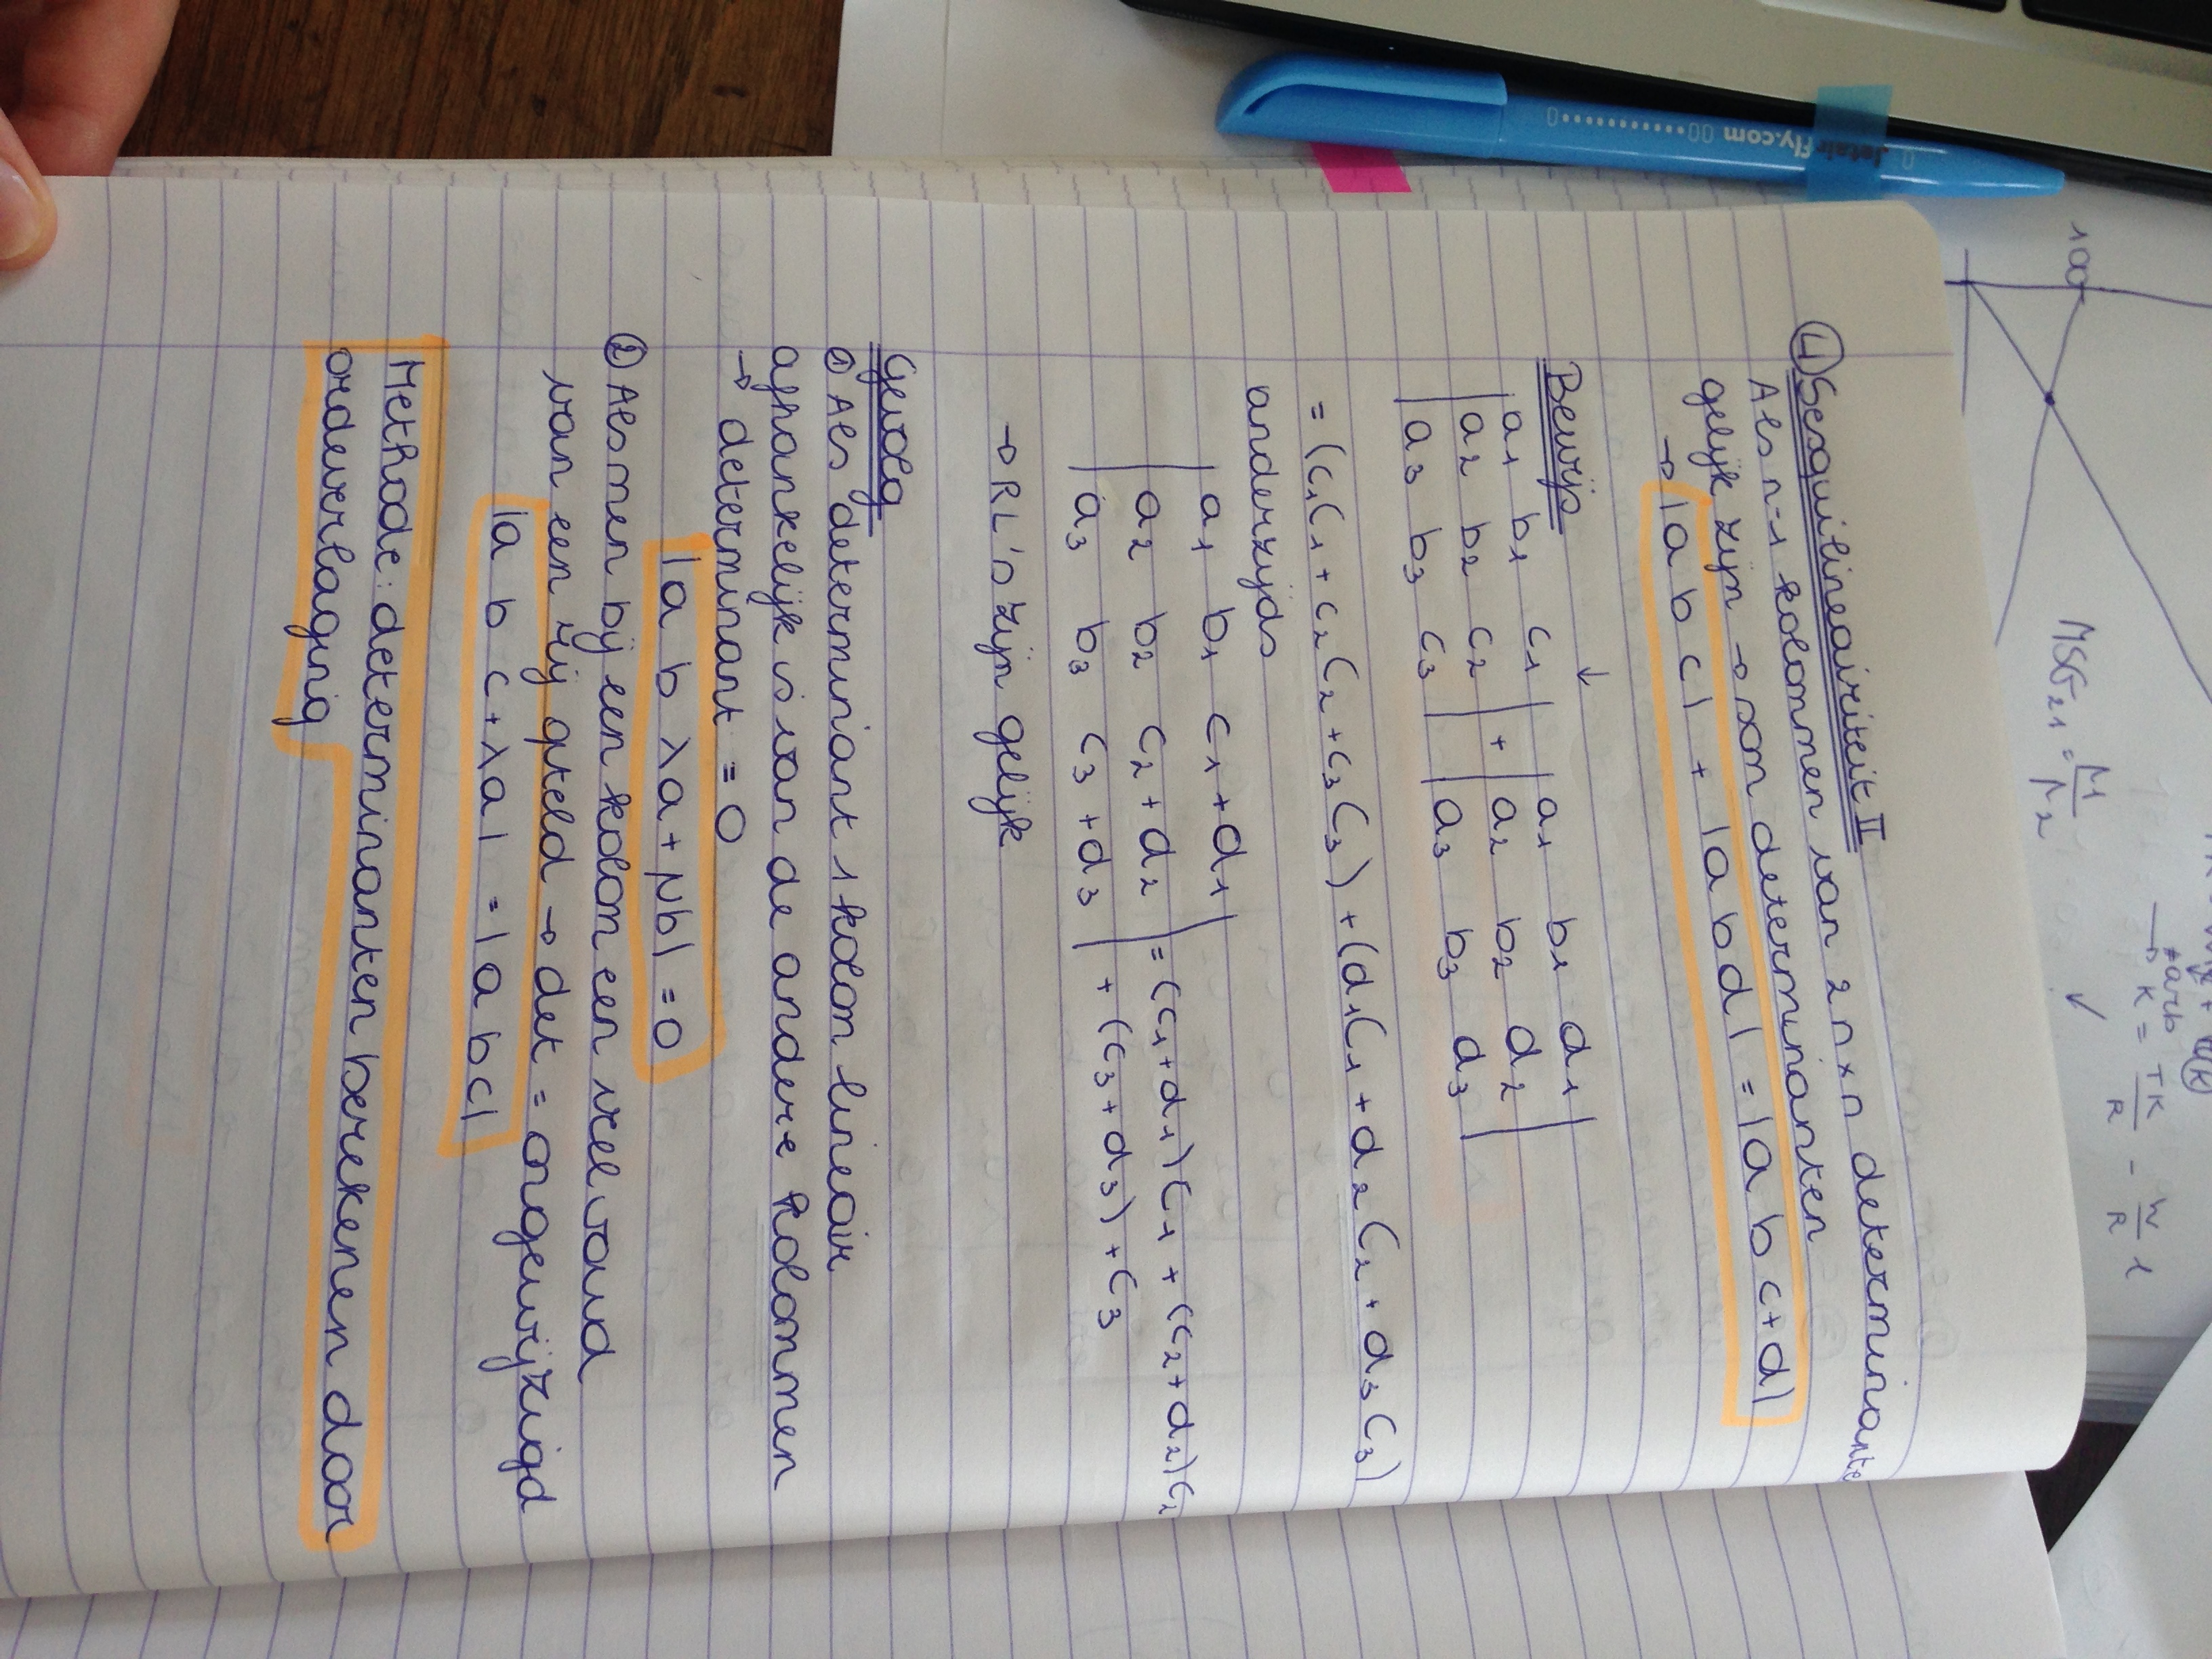 ④ Sesquilineairiteit II
Als n-1 kolommen van 2 n×n determinante
gelijk zijn → som determinanten
→ |a b c| + |a b d| = |a b c+d|
Bewijs ↓
|a1 b1 c1| |a1 b1 d1|
|a2 b2 c2| + |a2 b2 d2|
|a3 b3 c3| |a3 b3 d3|
= (c1C1 + c2C2 + c3C3) + (d1C1 + d2C2 + d3C3)
anderzijds
|a1 b1 c1+d1|
|a2 b2 c2+d2| = (c1+d1)C1 + (c2+d2)C2
|a3 b3 c3+d3| + (c3+d3)+C3
→ RL's zijn gelijk
Gevolg
① Als determinant 1 kolom lineair
afhankelijk is van de andere kolommen
→ determinant = 0
|a b λa+μb| = 0
② Als men bij een kolom een veelvoud
van een rij opteld → det = ongewijzigd
|a b c+λa| = |a b c|
Methode: determinanten berekenen door
orderverlaging
Jetairfly.com
100
MSG21 = M1/M2
K = TK/R - W/R 1